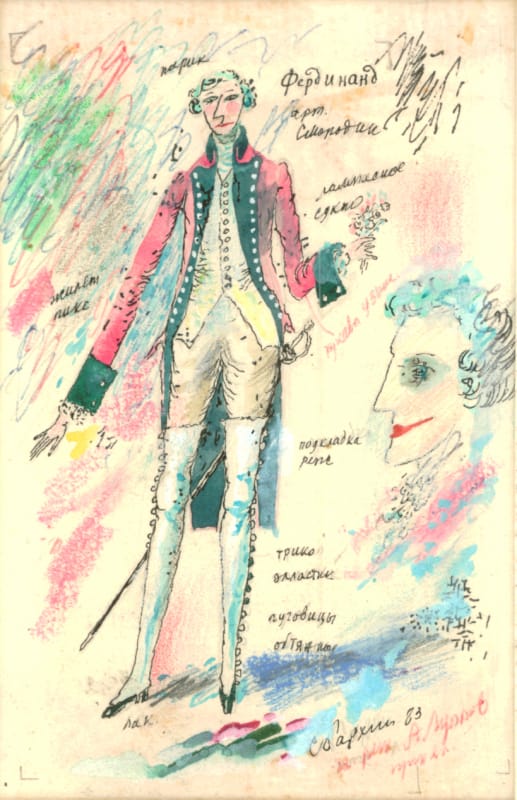 парик
Фердинанд
арт.
Смородин
лампасное
сукно
жилет
пике
подкладка
репс
трико
эластик
пуговицы
обтяжн
лак.
С Бархин 83